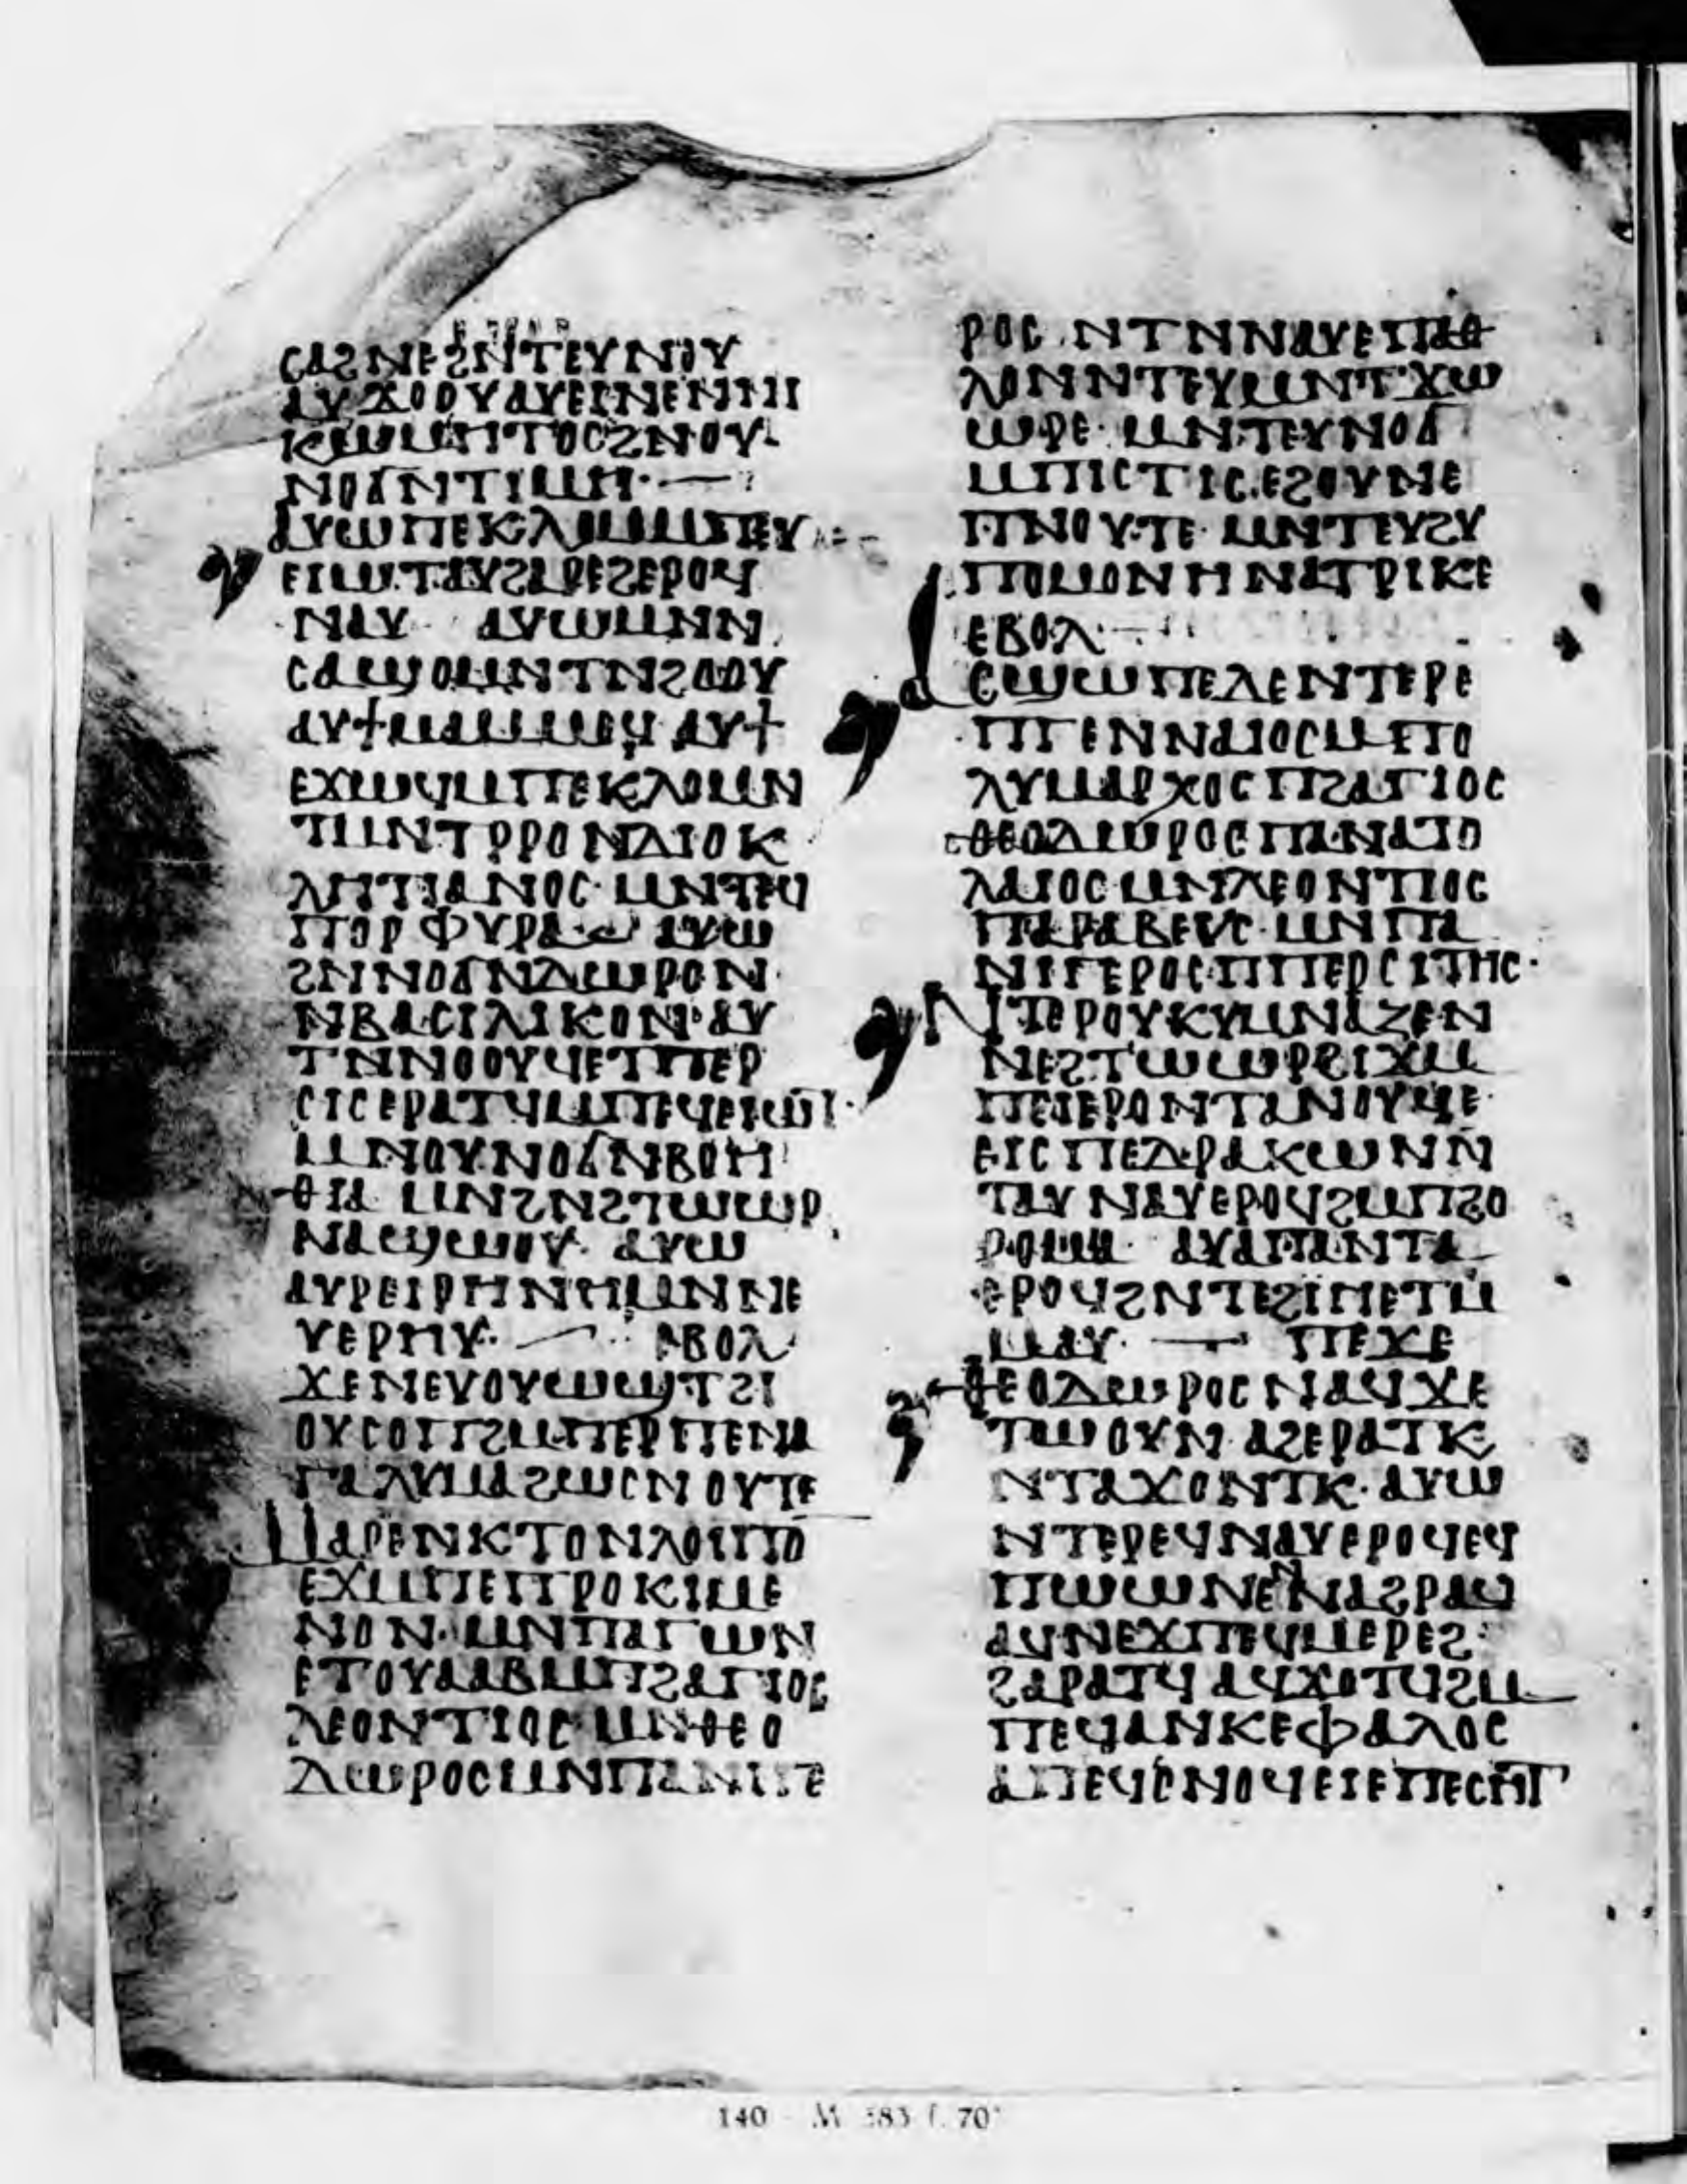 ⲤⲀϨⲚⲈϨⲚⲦⲈⲨⲚⲞⲨ
ⲀⲨϪⲞⲞⲨⲀⲨⲈⲒⲚⲈⲚⲚⲒ
ⲔⲰⲘⲎⲦⲞⲤϨⲚⲞⲨ
ⲚⲞϬⲚⲦⲒⲘⲎ·—
ⲀⲨⲰⲠⲈⲔⲖⲎⲘⲘⲠⲈⲨ
ⲈⲒⲰⲦⲀⲨϨⲀⲢⲈϨⲈⲢⲞϤ
ⲚⲀⲨ ⲀⲨⲰⲘⲚⲚ
ⲤⲀϢⲞⲘⲚⲦⲚϨⲞⲞⲨ
ⲀⲨϮⲘⲀⲘⲘⲈϤⲀⲨϮ
ⲈϪⲰϤⲘⲠⲈⲔⲖⲞⲘⲚ
ⲦⲘⲚⲦⲢⲢⲞⲚⲆⲒⲞⲔ
ⲖⲎⲦⲒⲀⲚⲞⲤ·ⲘⲚⲦⲈϤ
ⲠⲞⲢⲪⲨⲢⲀ ⲀⲨⲰ
ϨⲚⲚⲞϬⲚⲆⲰⲢⲞⲚ
ⲚⲂⲀⲤⲒⲖⲒⲔⲞⲚ·ⲀⲨ
ⲦⲚⲚⲞⲞⲨϤⲈⲦⲠⲈⲢ
ⲤⲒⲤⲈⲢⲀⲦϤⲘⲠⲈϤⲈⲒⲰⲦ·
ⲘⲚⲞⲨⲚⲞϬⲚⲂⲞⲎ
ⲐⲒⲀ ⲘⲚϨⲚϨⲦⲰⲰⲢ
ⲚⲀϢⲰⲞⲨ· ⲀⲨⲰ
ⲀⲨⲢⲈⲒⲢⲎⲚⲎⲘⲚⲚⲈ
ⲨⲈⲢⲎⲨ·— ⲈⲂⲞⲖ
ϪⲈⲚⲈⲨⲞⲨⲰϢⲦϨⲒ
ⲞⲨⲤⲞⲠϨⲘⲠⲈⲢⲠⲈⲚⲀ
ⲄⲀⲖⲨⲘⲀϨⲰⲤⲚⲞⲨⲦⲈ
ⲘⲀⲢⲈⲚⲔⲦⲞⲚⲖⲞⲒⲠⲞ
ⲈϪⲘⲠⲈⲒⲠⲢⲞⲔⲒⲘⲈ
ⲚⲞⲚ·ⲘⲚⲠⲀⲄⲰⲚ
ⲈⲦⲞⲨⲀⲀⲂⲘⲠϨⲀⲄⲒⲞⲤ
ⲖⲈⲞⲚⲦⲒⲞⲤ·ⲘⲚⲐⲈⲞ
ⲆⲰⲢⲞⲤⲘⲚⲠⲀⲚⲒⲄⲈ
ⲢⲞⲤ·ⲚⲦⲚⲚⲀⲨⲈⲠⲀⲐ
ⲖⲞⲚⲚⲦⲈⲨⲘⲚⲦϪⲰ
ⲰⲢⲈ·ⲘⲚⲦⲈⲨⲚⲞϬ
ⲘⲠⲒⲤⲦⲒⲤ·ⲈϨⲞⲨⲚⲈ
ⲠⲚⲞⲨⲦⲈ·ⲘⲚⲦⲈⲨϨⲨ
ⲠⲞⲘⲞⲚⲎⲚⲀⲦⲢⲒⲔⲈ
ⲈⲂⲞⲖ·—
ⲀⲤϢⲰⲠⲈⲆⲈⲚⲦⲈⲢⲈ
ⲠⲄⲈⲚⲚⲀⲒⲞⲤⲘⲠⲞ
ⲖⲨⲘⲀⲢⲬⲞⲤⲠϨⲀⲄⲒⲞⲤ
ⲐⲈⲞⲆⲰⲢⲞⲤⲠⲀⲚⲀⲦⲞ
ⲖⲀⲒⲞⲤ·ⲘⲚⲖⲈⲞⲚⲦⲒⲞⲤ
ⲠⲀⲢⲀⲂⲈⲨⲤ·ⲘⲚⲠⲀ
ⲚⲒⲄⲈⲢⲞⲤ·ⲠⲠⲈⲢⲤⲒⲦⲎⲤ·
ⲚⲦⲈⲢⲞⲨⲔⲨⲘⲚⲀⲌⲈⲚ
ⲚⲈϨⲦⲰⲰⲢⲈⲒϪⲘ
ⲠⲈⲒⲈⲢⲞⲚⲦⲀⲚⲞⲨϤⲈ·
ⲈⲒⲤⲠⲈⲆⲢⲀⲔⲰⲚⲚ
ⲦⲀⲨⲚⲀⲨⲈⲢⲞϤϨⲘⲠϨⲞ
ⲢⲞⲘⲀ· ⲀⲨⲀⲠⲀⲚⲦⲀ
ⲈⲢⲞϤϨⲚⲦⲈϨⲒⲎⲈⲦⲘ
ⲘⲀⲨ·— ⲠⲈϪⲈ
ⲐⲈⲞⲆⲰⲢⲞⲤⲚⲀϤϪⲈ
ⲦⲰⲞⲨⲚ·ⲀϨⲈⲢⲀⲦⲔ
ⲚⲦⲀϪⲞⲚⲦⲔ·ⲀⲨⲰ
ⲚⲦⲈⲢⲈϤⲚⲀⲨⲈⲢⲞϤⲈϤ
ⲠⲰⲰⲚⲈⲚⲚⲀϨⲢⲀϤ
ⲀϤⲚⲈϪⲠⲈϤⲘⲈⲢⲈϨ
ϨⲀⲢⲀⲦϤⲀϤϪⲞⲦϤϨⲘ
ⲠⲈϤⲀⲚⲔⲈⲪⲀⲖⲞⲤ
ⲀⲠⲈϤⲤⲚⲞϤⲈⲒⲈⲠⲈⲤⲎⲦ
140 M 583 f. 70ᵛ